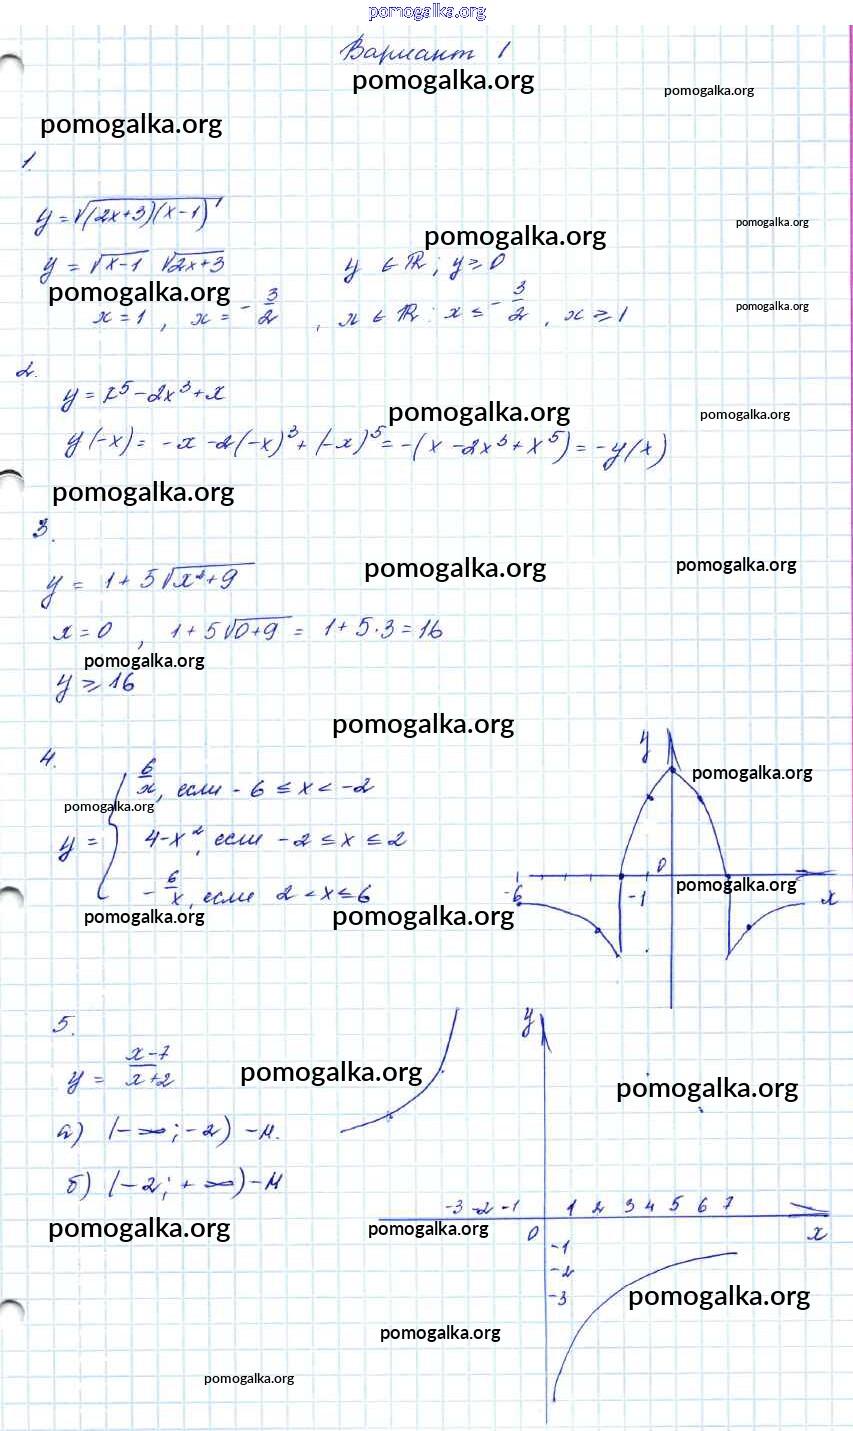 pomogalka.org
Вариант 1
pomogalka.org
pomogalka.org
pomogalka.org
1.
y = √((2x+3)(x-1))
pomogalka.org
y = √(x-1) √(2x+3)
y ∈ ℝ; y ≥ 0
pomogalka.org
pomogalka.org
x = 1, x = -3/2, x ∈ ℝ: x ≤ -3/2, x ≥ 1
pomogalka.org
2.
y = x⁵ - 2x³ + x
pomogalka.org
pomogalka.org
y(-x) = -x - 2(-x)³ + (-x)⁵ = -(x - 2x³ + x⁵) = -y(x)
pomogalka.org
3.
y = 1 + 5√(x²+9)
pomogalka.org
pomogalka.org
x = 0, 1 + 5√(0+9) = 1 + 5·3 = 16
pomogalka.org
y ≥ 16
pomogalka.org
4.
6/x, если -6 ≤ x < -2
pomogalka.org
y = { 4-x², если -2 ≤ x ≤ 2
-6/x, если 2 < x ≤ 6
pomogalka.org
pomogalka.org
y
pomogalka.org
0
pomogalka.org
-6
-1
x
5.
y = (x-7)/(x+2)
pomogalka.org
pomogalka.org
а) (-∞; -2) - м.
б) (-2; +∞) - м
pomogalka.org
y
-3 -2 -1 1 2 3 4 5 6 7
pomogalka.org
0
x
-1
-2
-3
pomogalka.org
pomogalka.org
pomogalka.org